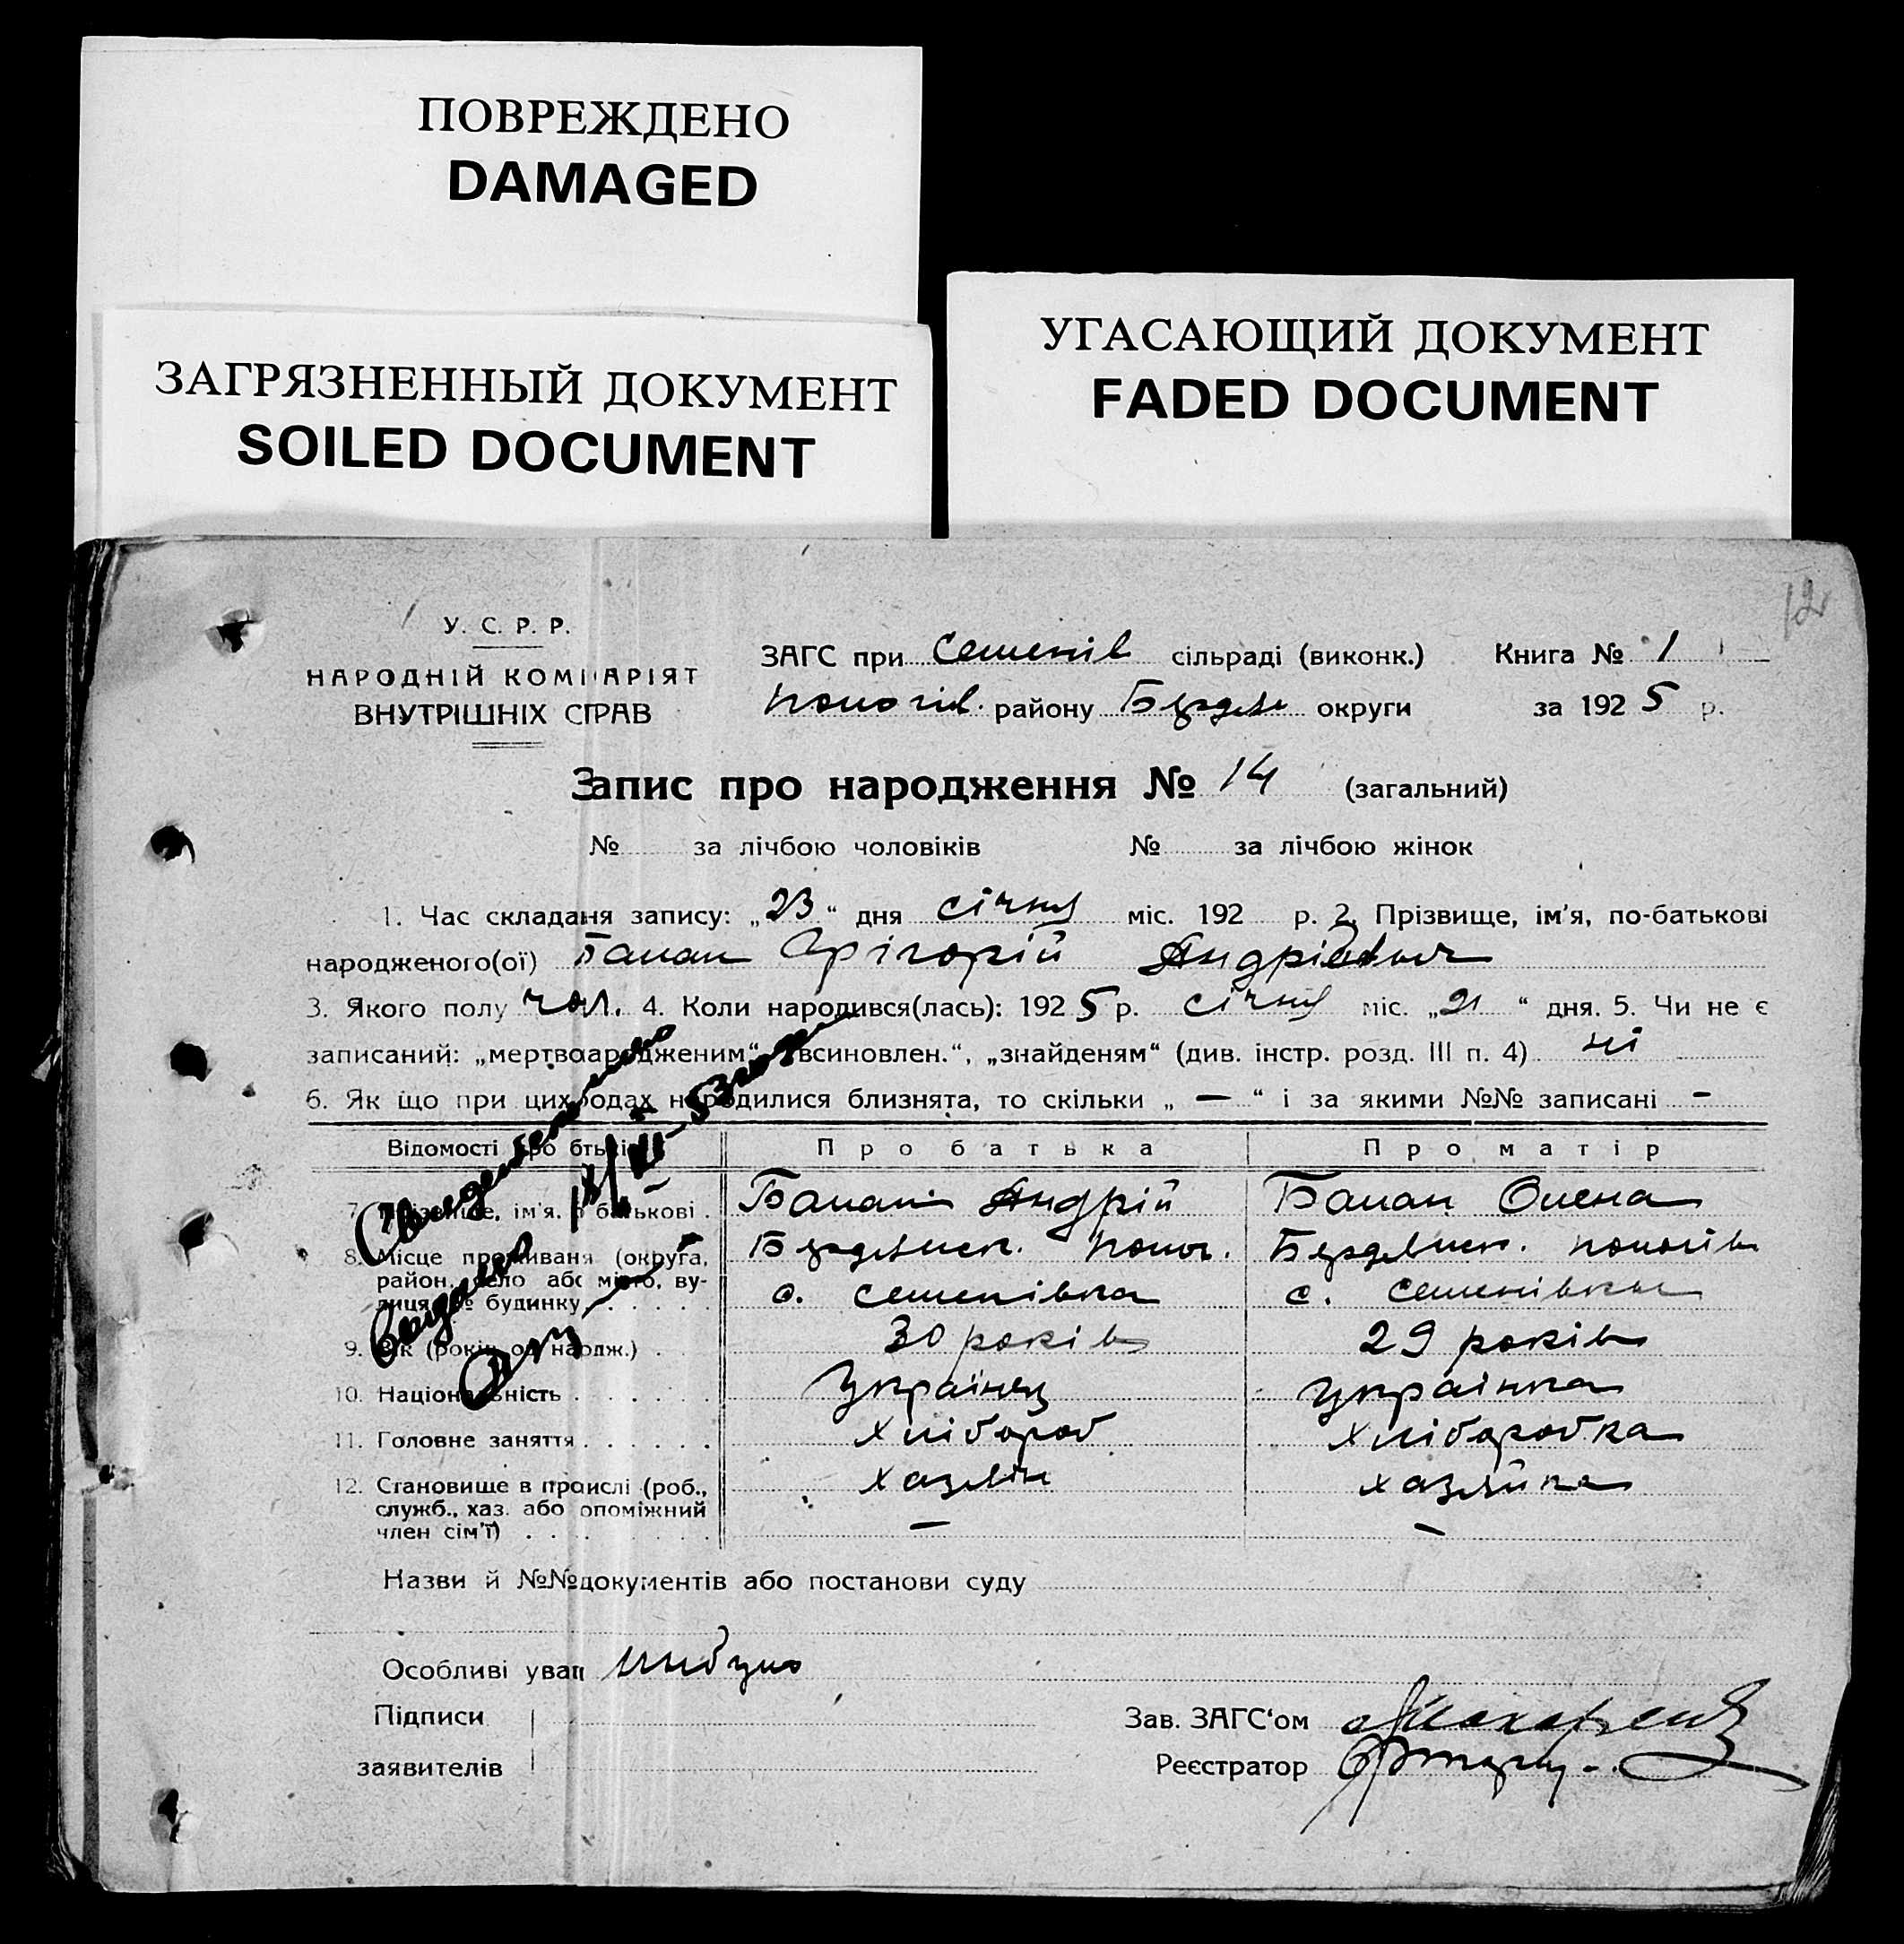 ПОВРЕЖДЕНО
DAMAGED
ЗАГРЯЗНЕННЫЙ ДОКУМЕНТ
SOILED DOCUMENT
УГАСАЮЩИЙ ДОКУМЕНТ
FADED DOCUMENT
12
У. С. Р. Р.
НАРОДНІЙ КОМІСАРІЯТ
ВНУТРІШНІХ СПРАВ
ЗАГС при Семенів сільраді (виконк.) Книга № 1
Пологів. району Бердян округи за 1925 р.
Запис про народження № 14 (загальний)
№ за лічбою чоловіків № за лічбою жінок
1. Час складаня запису: „23“ дня січня міс. 192 р. 2. Прізвище, ім'я, по-батькові
народженого(ої) Балан Грігорій Андрієвич
3. Якого полу чол. 4. Коли народився(лась): 1925 р. січня міс. „21“ дня. 5. Чи не є
записаний: „мертвонародженим“, „всиновлен.“, „знайденям“ (див. інстр. розд. III п. 4) ні
6. Як що при цих родах народилися близнята, то скільки „ — “ і за якими №№ записані -
Відомості про батьків Про батька Про матір
7. Прізвище, ім'я, по батькові . Балан Андрій Балан Олена
8. Місце проживаня (округа, Бердянськ. Полог. Бердянськ. Пологів
район, село або місто, ву-
лиця, № будинку . . . . . с. Семенівка с. Семенівка
9. Вік (років од нардж.) . . 30 років 29 років
10. Національність . . . . . . Українец Українка
11. Головне заняття . . . . . . Хлібороб Хлібороб ка
12. Становище в промислі (роб., Хазяїн Хазяйка
служб., хаз. або допоміжний
член сім'ї) . . . . . . . — —
Свидетельство
выдано 18/VI-53 года
Назви й №№ документів або постанови суду
Особливі уваги
Підписи
заявителів
Зав. ЗАГС'ом
Реєстратор